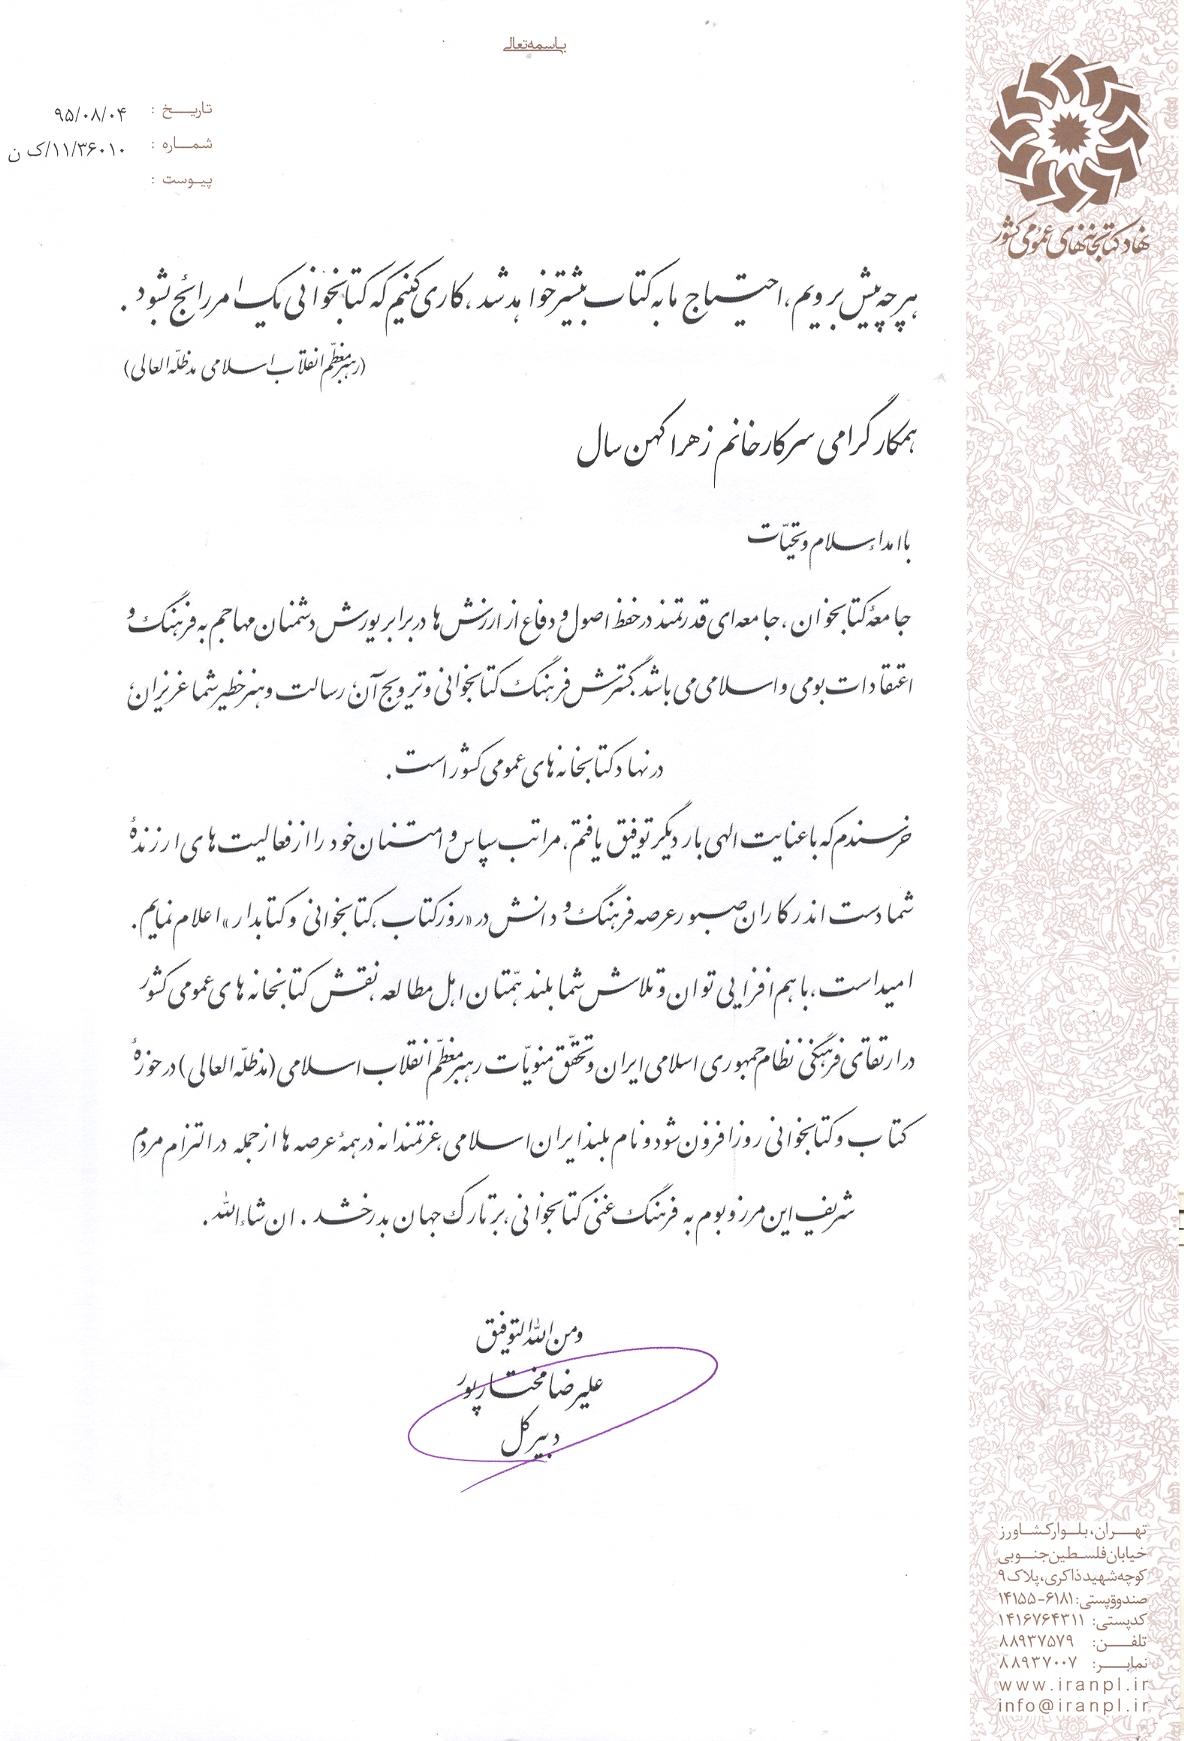 باسمه‌تعالی
تاریخ : ۹۵/۰۸/۰۴
شماره : ۱۱/۳۶۰۱۰/ک ن
پیوست :
نهاد کتابخانه‌های عمومی کشور
هرچه پیش برویم، احتیاج ما به کتاب بیشتر خواهد شد، کاری کنیم که کتابخوانی یک امر رائج بشود .
(رهبر معظّم انقلاب اسلامی مدظلّه العالی)
همکار گرامی سرکار خانم زهرا کهن سال
با اهداء سلام و تحیّات
جامعهٔ کتابخوان ، جامعه‌ای قدرتمند در حفظ اصول و دفاع از ارزش ها در برابر یورش دشمنان مهاجم به فرهنگ و
اعتقادات بومی و اسلامی می باشد. گسترش فرهنگ کتابخوانی و ترویج آن، رسالت و هنر خطیر شما عزیزان،
در نهاد کتابخانه های عمومی کشور است .
خرسندم که با عنایت الهی بار دیگر توفیق یافتم، مراتب سپاس و امتنان خود را از فعالیت های ارزندهٔ
شما دست اندرکاران صبور عرصه فرهنگ و دانش در «روز کتاب ،کتابخوانی و کتابدار» اعلام نمایم.
امید است، با هم افزایی توان و تلاش شما بلند همّتان اهل مطالعه ، نقش کتابخانه های عمومی کشور
در ارتقای فرهنگی نظام جمهوری اسلامی ایران و تحقّق منویّات رهبر معظّم انقلاب اسلامی (مدّظلّه العالی) در حوزهٔ
کتاب و کتابخوانی روز افزون شود و نام بلند ایران اسلامی، عزتمندانه در همهٔ عرصه ها از جمله در التزام مردم
شریف این مرز و بوم به فرهنگ غنی کتابخوانی، بر تارک جهان بدرخشد . ان شاءالله .
و من الله التوفیق
علیرضا مختارپور
دبیرکل
تهران، بلوار کشاورز
خیابان فلسطین جنوبی
کوچه شهید ذاکری، پلاک ۹
صندوق پستی: ۶۱۸۱-۱۴۱۵۵
کدپستی: ۱۴۱۶۷۶۴۳۱۱
تلفن: ۸۸۹۳۷۵۷۹
نمابر: ۸۸۹۳۷۰۰۷
www.iranpl.ir
info@iranpl.ir